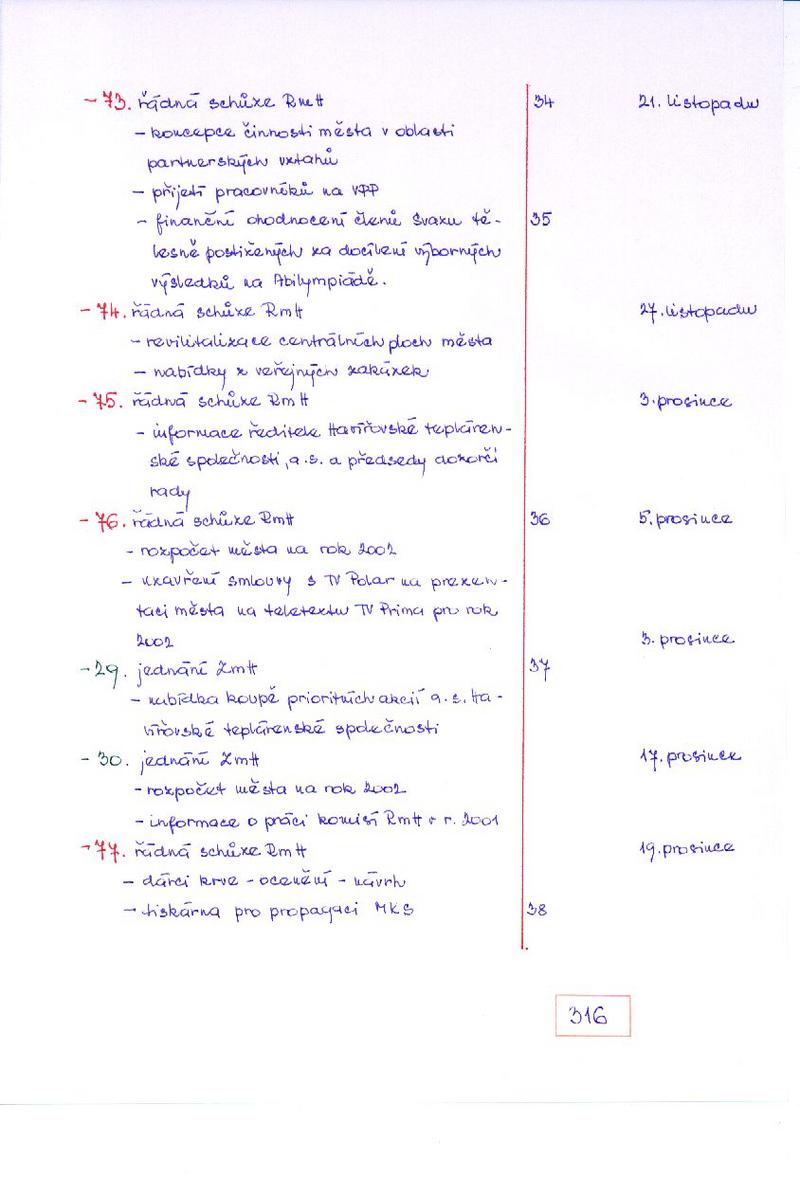 - 73. řádná schůze RmH 34 21. listopadu
- koncepce činnosti města v oblasti
partnerských vztahů
- přijetí pracovníků na VPP
- finanční ohodnocení členů Svazu tě- 35
lesně postižených za docílení výborných
výsledků na Abilympiádě.
- 74. řádná schůze RmH 27. listopadu
- revilitalizace centrálních ploch města
- nabídky z veřejných zakázek
- 75. řádná schůze RmH 3. prosince
- informace ředitele Havířovské tepláren-
ské společnosti, a.s. a předsedy dozorčí
rady
- 76. řádná schůze RmH 36 5. prosince
- rozpočet města na rok 2002
- uzavření smlouvy s TV Polar na prezen-
taci města na teletextu TV Prima pro rok
2002 3. prosince
- 29. jednání ZmH 37
- nabídka koupě prioritních akcií a.s. Ha-
vířovské teplárenské společnosti
- 30. jednání ZmH 17. prosince
- rozpočet města na rok 2002
- informace o práci komisí RmH v r. 2001
- 77. řádná schůze RmH 19. prosince
- dárci krve - ocenění - návrh
- tiskárna pro propagaci MKS 38
316